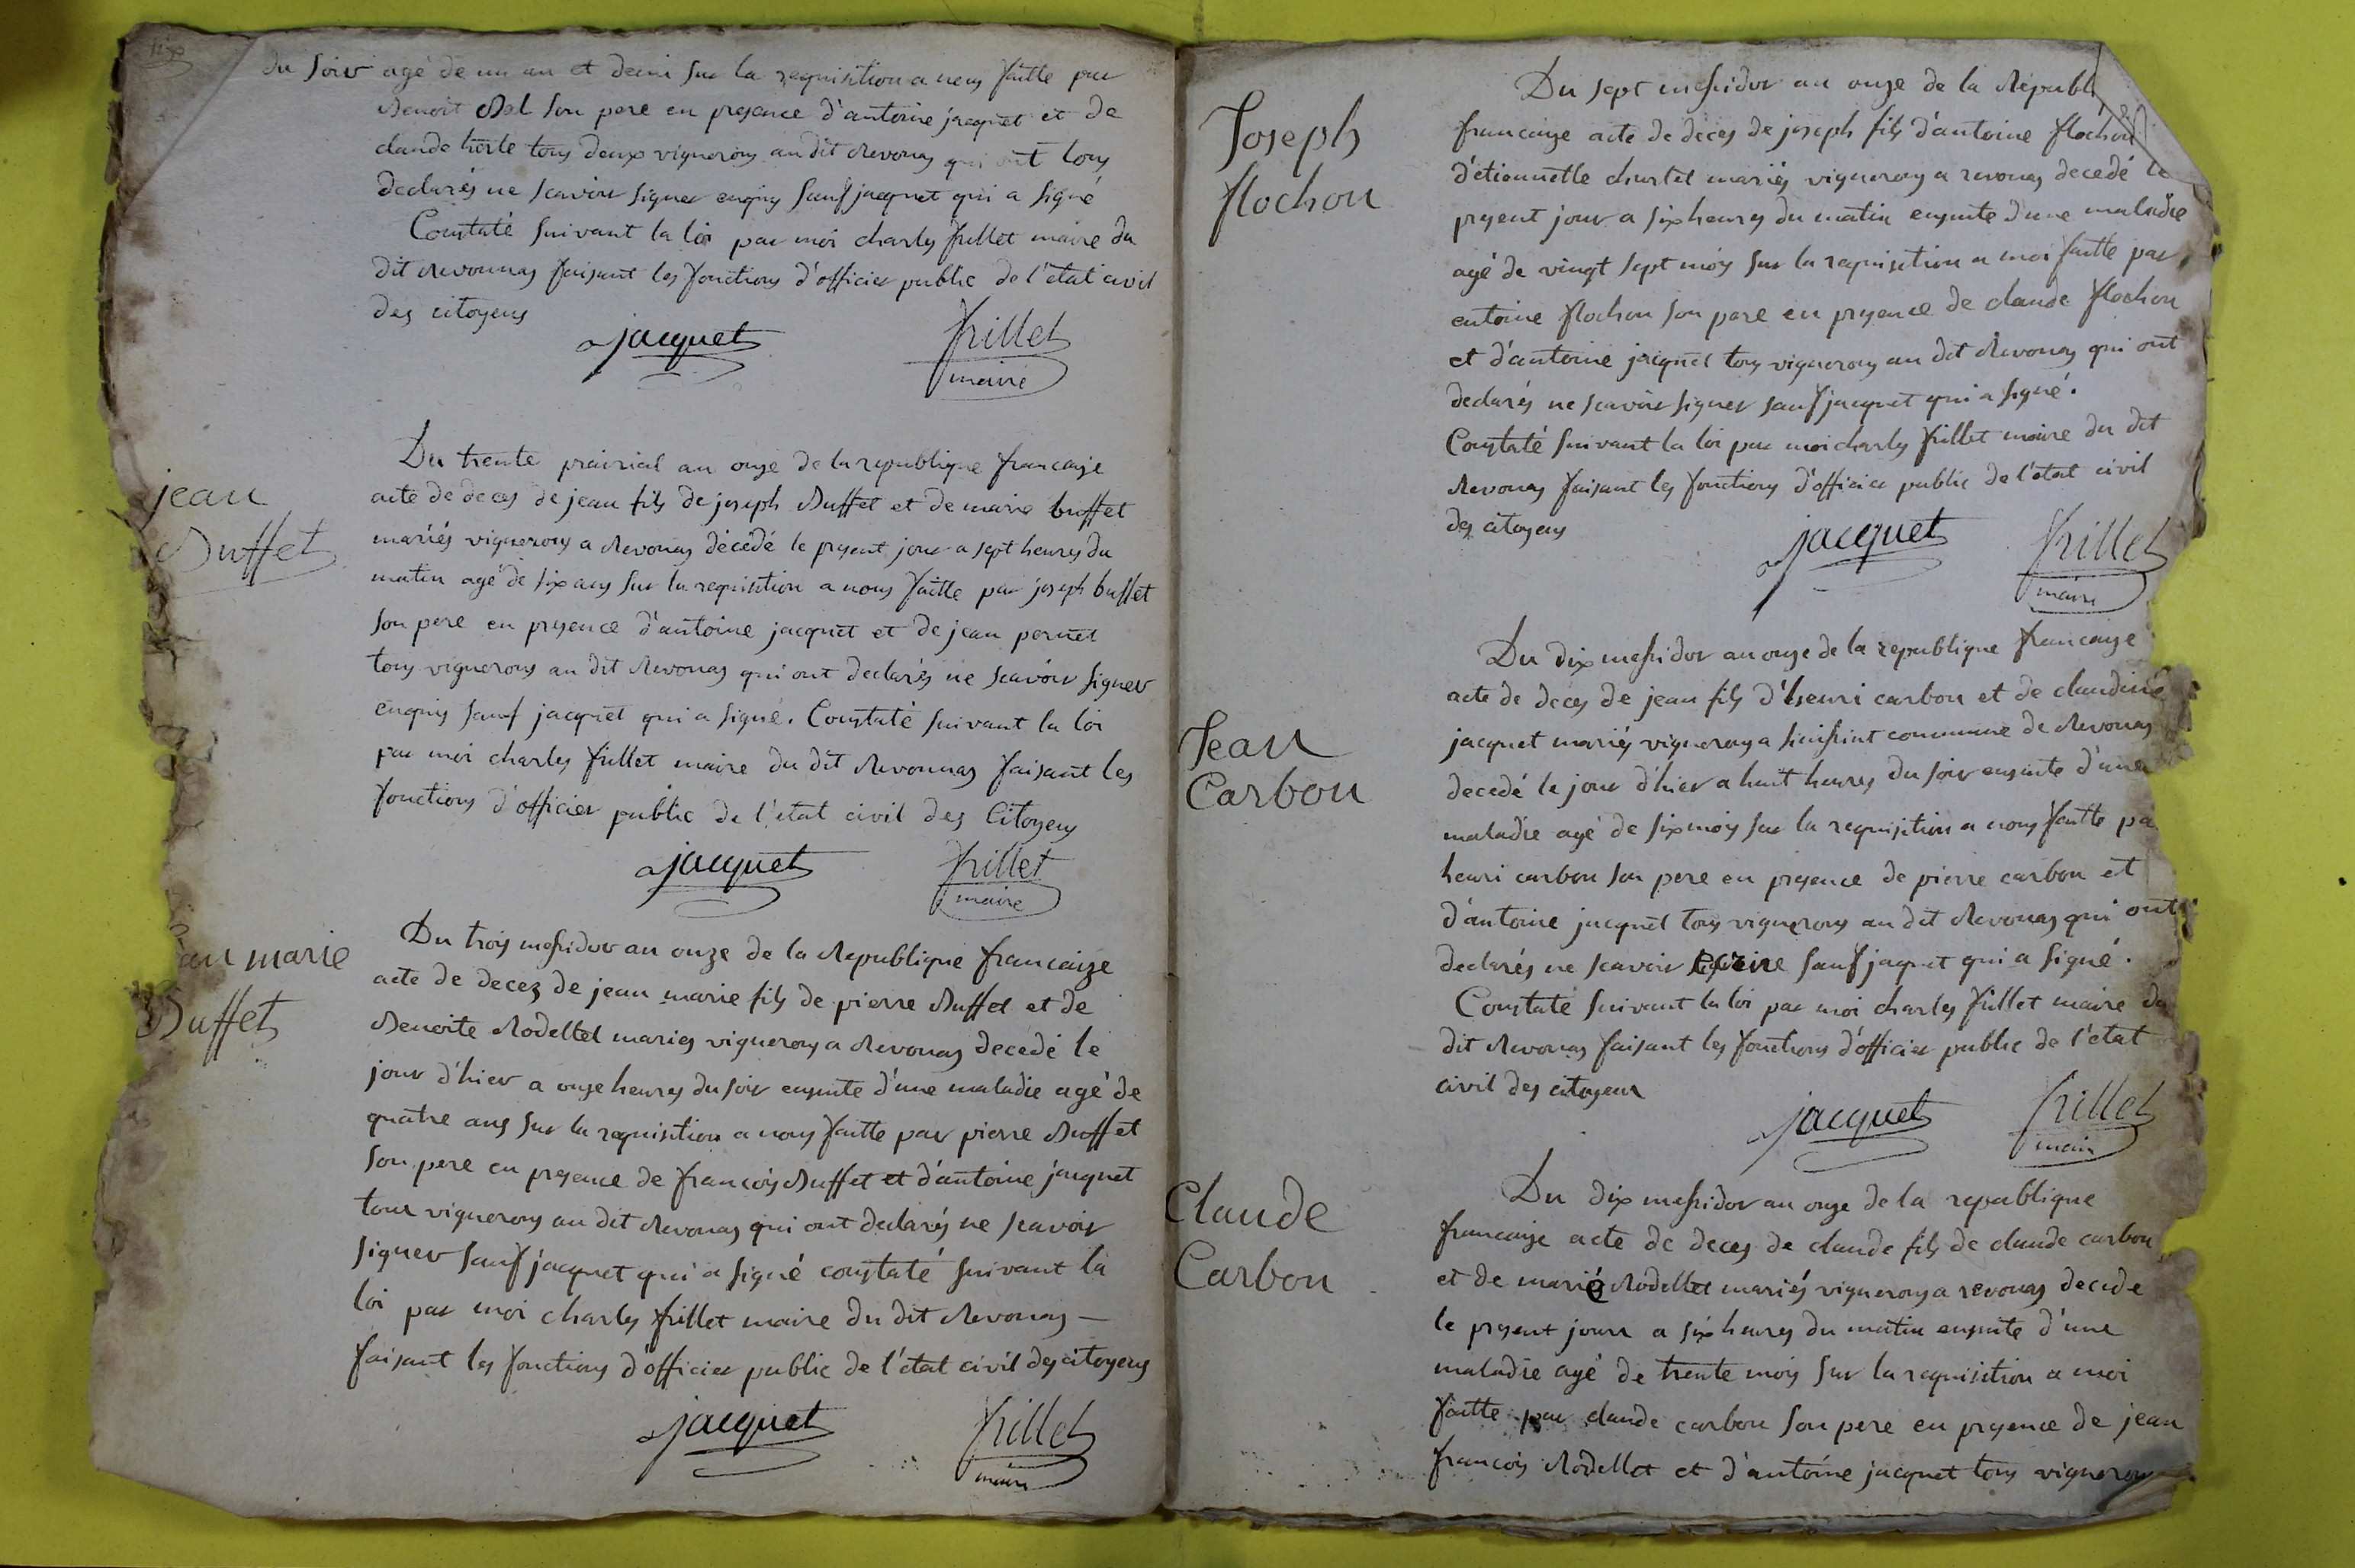 du soir agé de un an et demi sur la requisition a nous faitte par
Benoit Bal son pere en presence d'antoine jacquet et de
claude tous deux vignerons au dit Revonas qui ont tous
declarés ne scavoir signer enquis sauf jacquet qui a signé
Constaté suivant la loi par moi charles frillet maire du
dit Revonnas faisant les fonctions d'officier public de l'état civil
des citoyens
jacquet
frillet
maire
jean
Buffet
Du trente prairial an onze de la republique francaise
acte de deces de jean fils de joseph Buffet et de marie buffet
mariés vignerons a Revonas décédé le present jour a sept heures du
matin agé de six ans sur la requisition a nous faitte par joseph buffet
son pere en presence d'antoine jacquet et de jean pernet
tous vignerons au dit Revonas qui ont declarés ne scavoir signer
enquis sauf jacquet qui a signé. Constaté suivant la loi
par moi charles frillet maire du dit Revonnas faisant les
fonctions d'officier public de l'état civil des Citoyens
jacquet
frillet
maire
an marie
Buffet
Du trois messidor an onze de la Republique francaize
acte de decez de jean marie fils de pierre Buffet et de
Benoite Rodellet maries vignerons a Revonas decedé le
jour d'hier a onze heures du soir ensuite d'une maladie agé de
quatre ans sur la requisition a nous faitte par pierre Buffet
son pere en presence de francois Buffet et d'antoine jacquet
tous vignerons au dit Revonas qui ont declarés ne scavoir
signer sauf jacquet qui a signé constaté suivant la
loi par moi charles frillet maire du dit Revonas —
faisant les fonctions d'officier public de l'état civil des citoyens
jacquet
frillet
maire
Joseph
flochon
Du sept messidor an onze de la Républ
francaize acte de deces de joseph fils d'antoine flochon
d'étionnette chartel mariés vignerons a revonas decedé le
present jour a six heures du matin ensuite d'une maladie
agé de vingt sept mois sur la requisition a moi faitte par
antoine flochon son pere en presence de claude flochon
et d'antoine jacquet tous vignerons au dit Revonas qui ont
declarés ne scavoir signer sauf jacquet qui a signé.
Constaté suivant la loi par moi charles frillet maire du dit
Revonas faisant les fonctions d'officier public de l'état civil
des citoyens
jacquet
frillet
maire
Jean
Carbon
Du dix messidor an onze de la republique francaize
acte de deces de jean fils d'henri carbon et de claudine
jacquet mariés vignerons a commune de Revonas
decedé le jour d'hier a huit heures du soir ensuite d'une
maladie agé de six mois sur la requisition a nous faitte pa
henri carbon son pere en presence de pierre carbon et
d'antoine jacquet tous vignerons au dit Revonas qui ont
declarés ne scavoir ecrire sauf jaquet qui a signé.
Constaté suivant la loi par moi charles frillet maire du
dit Revonas faisant les fonctions d'officier public de l'état
civil des citoyens
jacquet
frillet
maire
Claude
Carbon
Du dix messidor an onze de la republique
francaize acte de deces de claude fils de claude carbon
et de marie Rodellet mariés vignerons a revonas decede
le present jour a six heures du matin ensuite d'une
maladie agé de trente mois sur la requisition a moi
faitte par claude carbon son pere en presence de jean
francois Rodellet et d'antoine jacquet tous vignerons